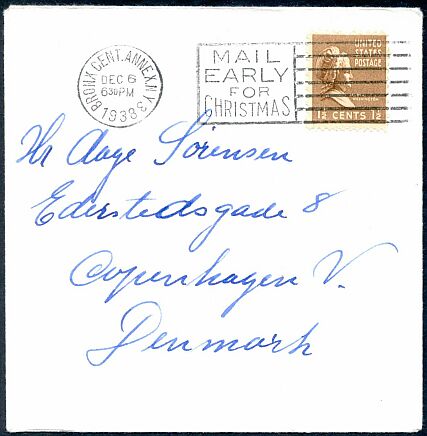 BRONX CENT. ANNEX. N.Y.
DEC 6
630PM
1938
MAIL
EARLY
FOR
CHRISTMAS
UNITED
STATES
POSTAGE
WASHINGTON
1½ CENTS 1½
Hr Aage Sörensen
Ederstedsgade 8
Copenhagen V.
Denmark